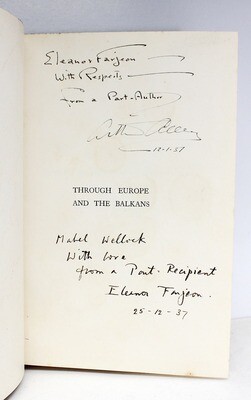 Eleanor Farjeon
With Respects
From a Part-Author
12-1-37
THROUGH EUROPE
AND THE BALKANS
Mabel Wellock
With love
from a Part-Recipient
Eleanor Farjeon.
25-12-37